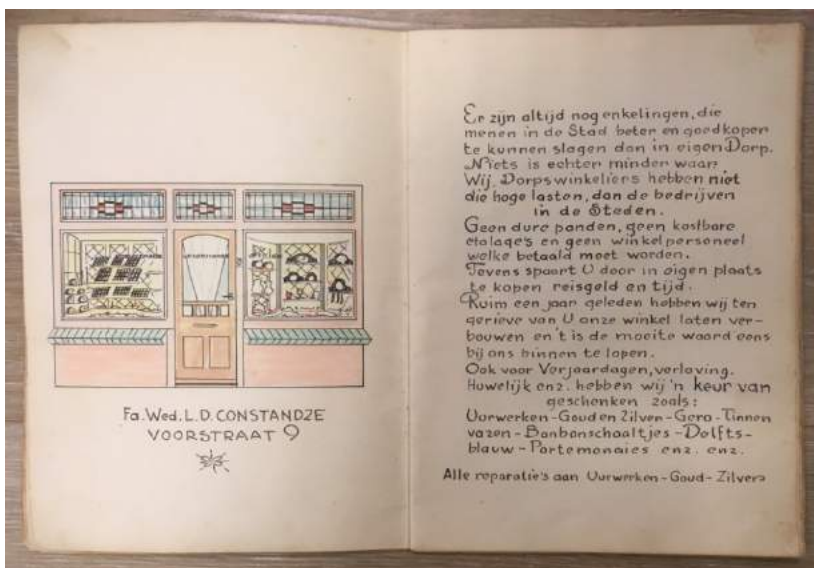 Fa. Wed. L. D. CONSTANDZE
VOORSTRAAT 9
Er zijn altijd nog enkelingen, die
menen in de Stad beter en goedkoper
te kunnen slagen dan in eigen Dorp.
Niets is echter minder waar.
Wij, Dorpswinkeliers hebben niet
die hoge lasten, dan de bedrijven
in de Steden.
Geen dure panden, geen kostbare
etalage's en geen winkelpersoneel
welke betaald moet worden.
Tevens spaart U door in eigen plaats
te kopen reisgeld en tijd.
Ruim een jaar geleden hebben wij ten
gerieve van U onze winkel laten ver-
bouwen en 't is de moeite waard eens
bij ons binnen te lopen.
Ook voor Verjaardagen, verloving.
Huwelijk enz. hebben wij 'n keur van
geschenken zoals:
Uurwerken - Goud en Zilver - Gero - Tinnen
vazen - Bonbonschaaltjes - Delfts-
blauw - Portemonaies enz. enz.
Alle reparatie's aan Uurwerken - Goud - Zilver